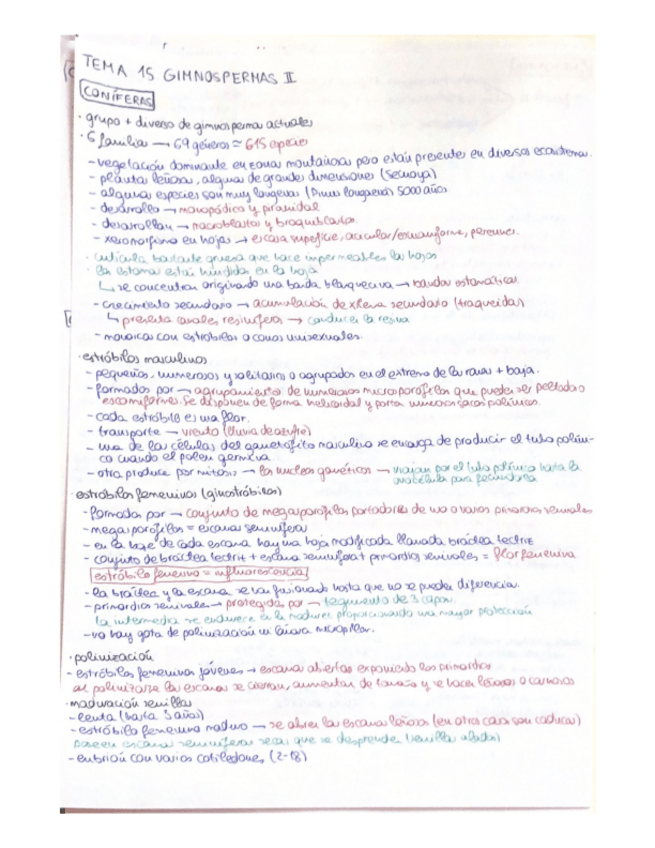 TEMA 15 GIMNOSPERMAS II
CONÍFERAS
· grupo + diverso de gimnosperma actuales
· 6 familia → 69 géneros ≈ 615 especies
- vegetación dominante en zonas montañosas pero están presentes en diversos ecosistemas.
- plantas leñosas, algunas de grandes dimensiones (Secuoya)
- algunas especies son muy longevas (Pinus longaeva) 5000 años
- desarrollo → monopódico y piramidal
- desarrollan → macroblastos y braquiblastos
- xeromorfismo en hojas → escasa superficie, acicular/escuamiforme, perennes.
· cutícula bastante gruesa que hace impermeables las hojas
· los estomas están hundidos en la hoja
↳ se concentran originando una banda blanquecina → bandas estomáticas.
- crecimiento secundario → acumulación de xilema secundario (traqueidas)
↳ presenta canales resiníferos → conducen la resina
- monoicas con estróbilos o conos unisexuales.
· estróbilos masculinos
- pequeños, numerosos y solitarios o agrupados en el extremo de las ramas + bajas.
- formados por → agrupamiento de numerosos microsporófilos que pueden ser peltados o
escamiformes. Se disponen de forma helicoidal y portan numerosos sacos polínicos.
- cada estróbilo es una flor.
- transporte → viento (lluvia de azufre)
- una de las células del gametofito masculino se encarga de producir el tubo políni-
co cuando el polen germina
- otra produce por mitosis → los nucleos gaméticos → viajan por el tubo polínico hasta la
ovocélula para fecundarla
· estróbilos femeninos (ginostróbilos)
- formados por → conjunto de megasporofilos portadores de uno o varios primordios seminales
- megasporófilos = escamas seminífera
- en la base de cada escama hay una hoja modificada llamada bráctea tectriz
- conjunto de bráctea tectriz + escama seminífera + primordios seminales = flor femenina
estróbilo femenino = inflorescencia
- la bráctea y la escama se van fusionando hasta que no se pueden diferenciar.
- primordios seminales → protegidos por → tegumento de 3 capas.
la intermedia se endurece en la madurez proporcionando una mayor protección
- no hay gota de polinización ni cámara micropilar.
· polinización
- estróbilos femeninos jóvenes → escamas abiertas exponiendo los primordios
al polinizarse las escamas se cierran, aumentan de tamaño y se hacen leñosas o carnosas
· maduración semillas
- lenta (hasta 3 años)
- estróbilo femenino maduro → se abren las escamas leñosas (en otros casos son caducas)
poseen escamas seminíferas secas que se desprenden (semillas aladas)
- embrión con varios cotiledones (2-18)